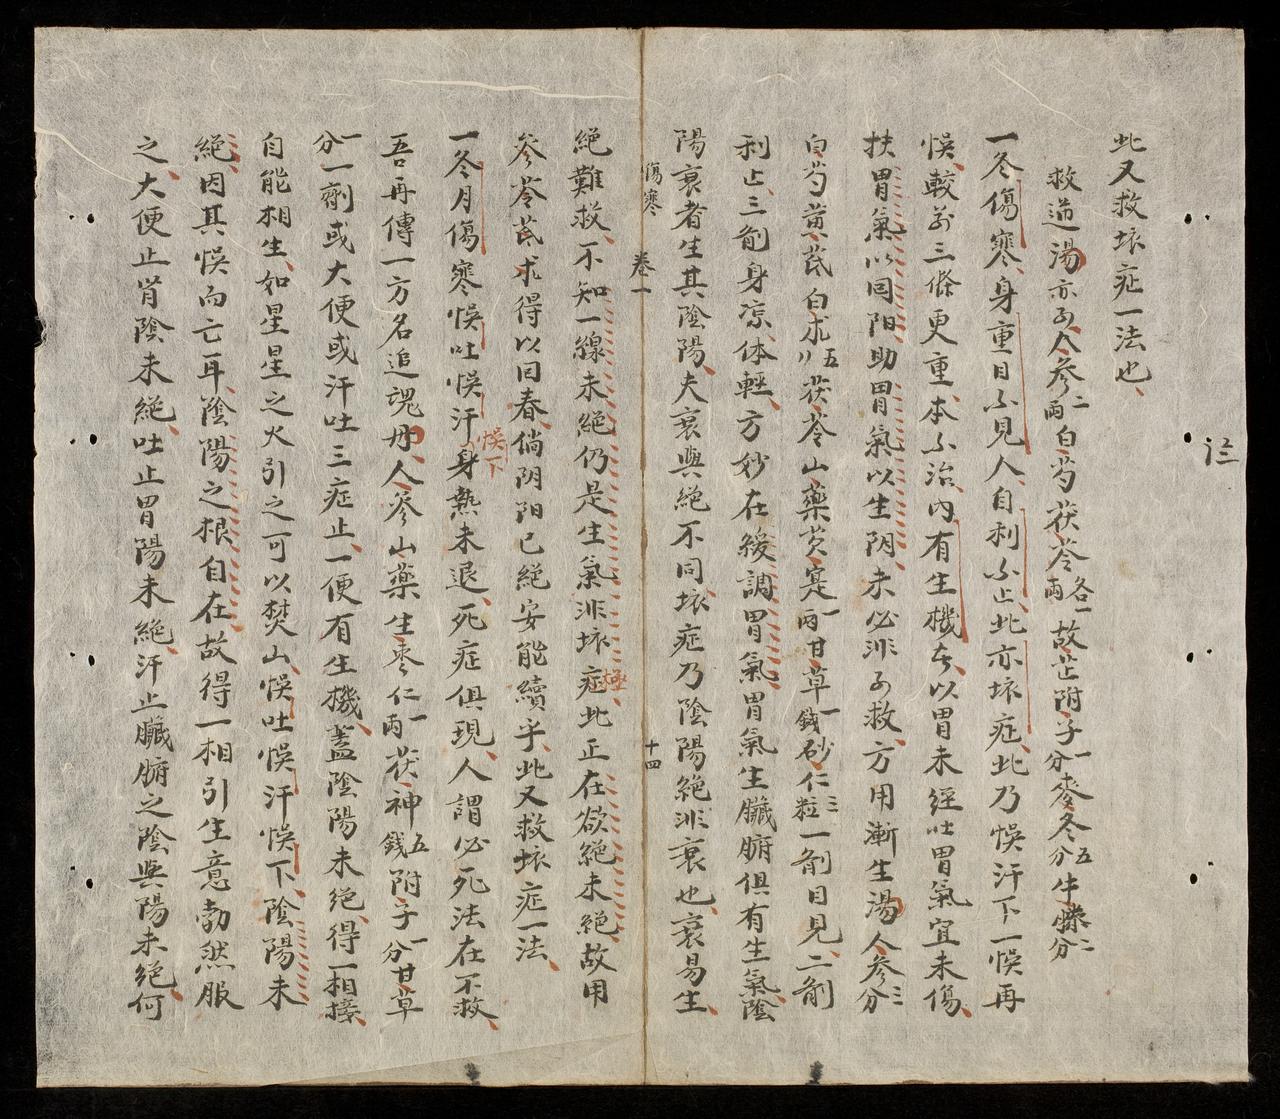 此又救坏症一法也
救逆湯亦可人參二兩白芍茯苓各一兩故芷附子一分麥冬五分牛膝二分
一冬傷寒身重目不見人自利不止此亦坏症此乃悞汗下一悞再
悞較前三條更重本不治內有生機在以胃未經吐胃氣宜未傷
扶胃氣以回阳助胃氣以生阴未必非可救方用漸生湯人參三分
白芍黃芪白朮〃五茯苓山藥芡寔一兩甘草一錢砂仁三粒一劑目見二劑
利止三劑身凉体輕方妙在緩調胃氣胃氣生臟腑俱有生氣陰
陽衰者生其陰陽夫衰與絕不同坏症乃陰陽絕非衰也衰易生
傷寒 卷一 十四
絕難救不知一線未絕仍是生氣非坏極症此正在欲絕未絕故用
參苓芪朮得以回春倘阴阳已絕安能續乎此又救坏症一法
一冬月傷寒悞吐悞汗悞下身熱未退死症俱現人謂必死法在不救
吾再傳一方名追魂丹人參山藥生棗仁一兩茯神五錢附子一分甘草
一分一劑或大便或汗吐三症止一便有生機蓋陰陽未絕得一相接
自能相生如星星之火引之可以焚山悞吐悞汗悞下陰陽未
絕因其悞而亡耳陰陽之根自在故得一相引生意勃然服
之大便止肾陰未絕吐止胃陽未絕汗止臟腑之陰與陽未絕何